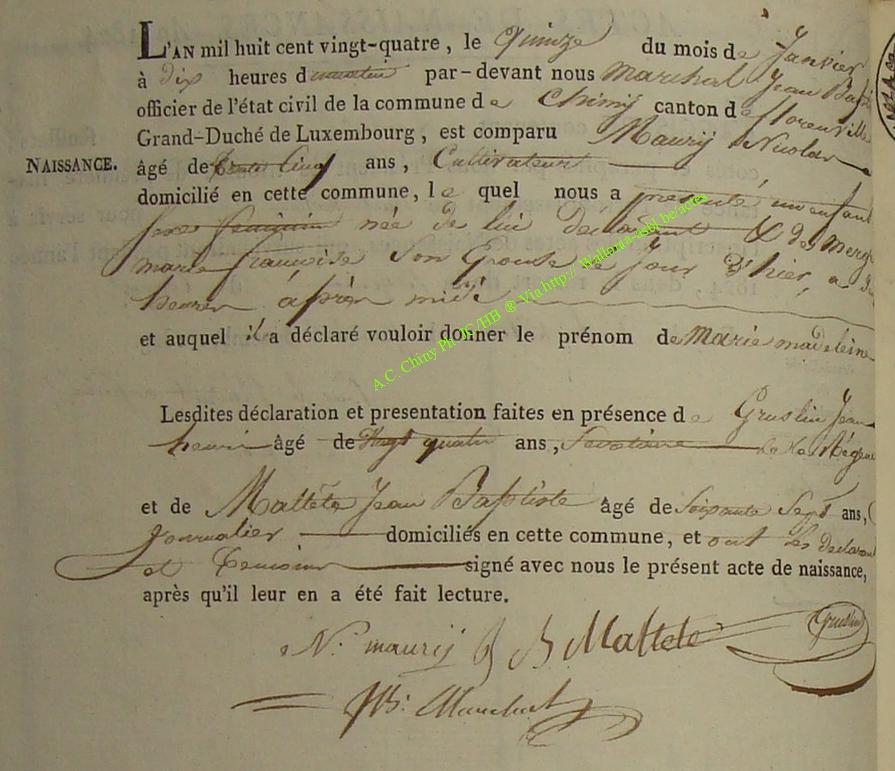 L'AN mil huit cent vingt-quatre, le Quinze du mois de Janvier
à dix heures du matin par-devant nous Marchal Jean Bapt
officier de l'état civil de la commune de Chiny canton de florenville
Grand-Duché de Luxembourg, est comparu Maurij Nicolas
NAISSANCE.
âgé de trente Cinq ans, Cultivateur
domicilié en cette commune, le quel nous a présenté un enfant
sexe feminin née de lui déclarant & de
marie françoise son Epouse le jour d'hier, a
heures après midi
et auquel il a déclaré vouloir donner le prénom de Marie madeleine
Lesdites déclaration et presentation faites en présence de Gruslin Jean
henri âgé de Vingt quatre ans, de la Régence
et de Mattète Jean Baptiste âgé de Soixante Sept ans,
journalier domiciliés en cette commune, et ont les declarant
et temoins signé avec nous le présent acte de naissance,
après qu'il leur en a été fait lecture.
N. maurij J B Mattete Gruslin
JB: Marchal
A.C. Chiny Ph JC /HB ® Via http:// Wallonia-asbl.be/actes